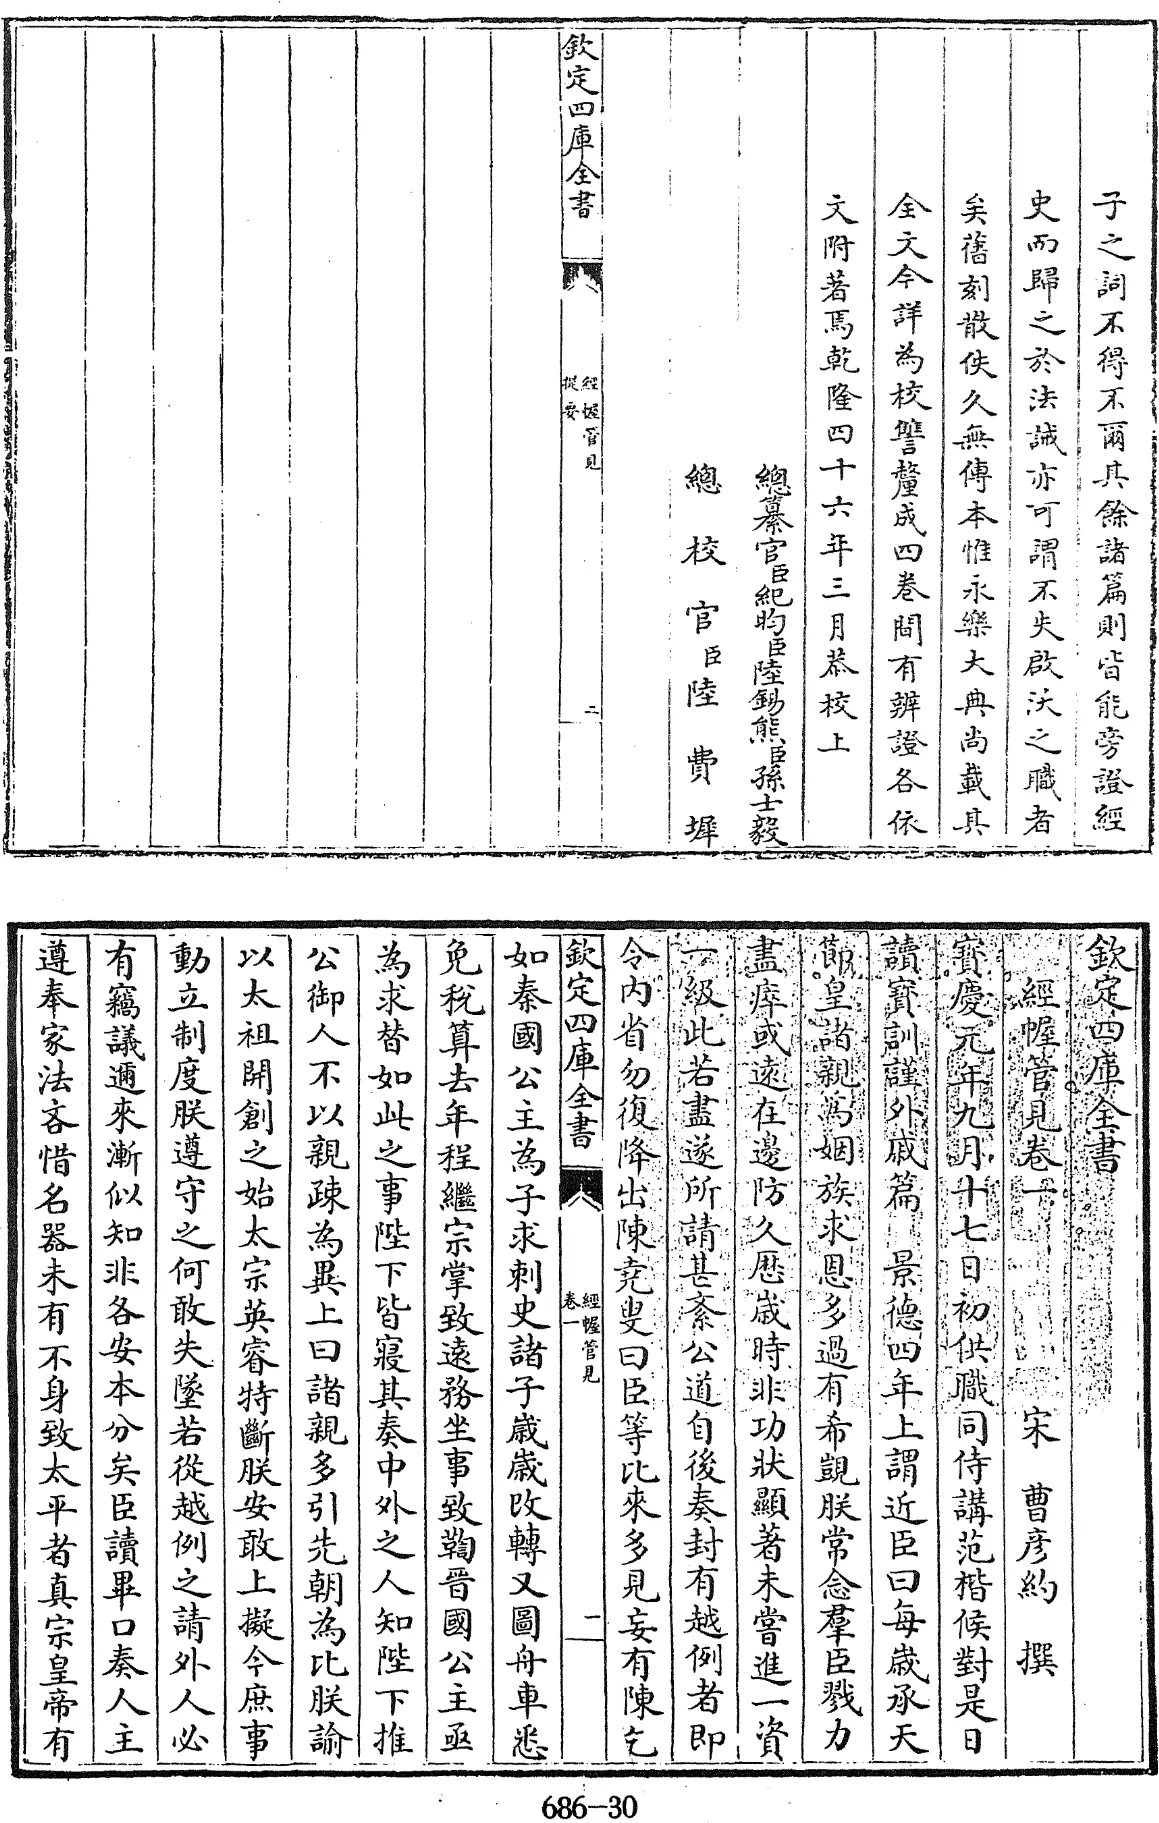 子之詞不得不爾其餘諸篇則皆能旁證經
史而歸之於法誡亦可謂不失啟沃之職者
矣舊刻散佚久無傳本惟永樂大典尚載其
全文今詳為校讐釐成四卷間有辨證各依
文附著焉乾隆四十六年三月恭校上
總纂官臣紀昀臣陸錫熊臣孫士毅
總校官臣陸費墀
欽定四庫全書
經幄管見
提要
二
欽定四庫全書
經幄管見卷一
宋 曹彦約 撰
寳慶元年九月十七日初供職同侍講范楷候對是日
讀寳訓謹外戚篇 景德四年上謂近臣曰每嵗承天
節皇諸親為姻族求恩多過有希覬朕常念羣臣戮力
盡瘁或遠在邊防久歴嵗時非功狀顯著未嘗進一資
一級此若盡遂所請甚紊公道自後奏封有越例者即
令内省勿復降出陳堯叟曰臣等比來多見妄有陳乞
欽定四庫全書
經幄管見
卷一
一
如秦國公主為子求刺史諸子嵗嵗改轉又圖舟車悉
免稅算去年程繼宗掌致遠務坐事致鞫晉國公主亟
為求替如此之事陛下皆寢其奏中外之人知陛下推
公御人不以親疎為異上曰諸親多引先朝為比朕諭
以太祖開創之始太宗英睿特斷朕安敢上擬今庶事
動立制度朕遵守之何敢失墜若從越例之請外人必
有竊議邇來漸似知非各安本分矣臣讀畢口奏人主
遵奉家法吝惜名器未有不身致太平者真宗皇帝有
686-30